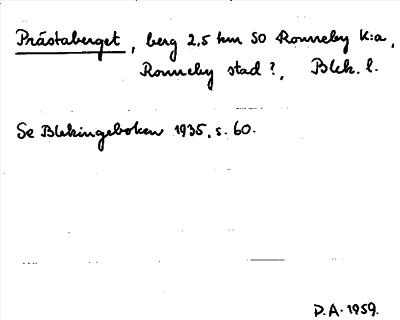 Prästaberget, berg 2,5 km SO Ronneby K:a,
Ronneby stad?, Blek. l.
Se Blekingeboken 1935, s. 60.
D.A. 1959.